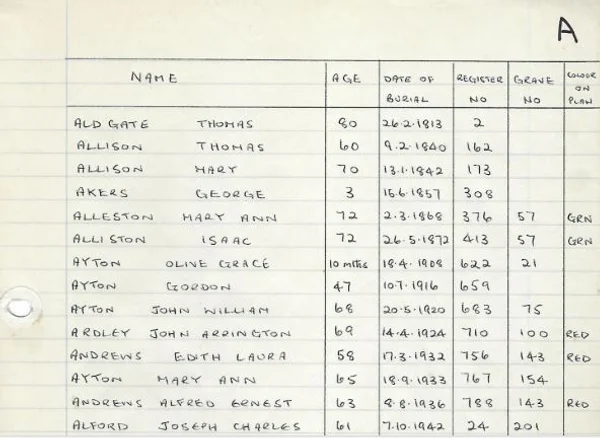 A
NAME AGE DATE OF BURIAL REGISTER NO GRAVE NO COLOUR ON PLAN
ALDGATE THOMAS 80 26.2.1813 2
ALLISON THOMAS 60 9.2.1840 162
ALLISON MARY 70 13.1.1842 173
AKERS GEORGE 3 15.6.1857 308
ALLESTON MARY ANN 72 2.3.1868 376 57 GRN
ALLISTON ISAAC 72 26.5.1872 413 57 GRN
AYTON OLIVE GRACE 10 MTHS 18.4.1908 622 21
AYTON GORDON 47 10.7.1916 659
AYTON JOHN WILLIAM 68 20.5.1920 683 75
ARDLEY JOHN ARRINGTON 69 14.4.1924 710 100 RED
ANDREWS EDITH LAURA 58 17.3.1932 756 143 RED
AYTON MARY ANN 65 18.9.1933 767 154
ANDREWS ALFRED ERNEST 63 8.8.1936 788 143 RED
ALFORD JOSEPH CHARLES 61 7.10.1942 24 201